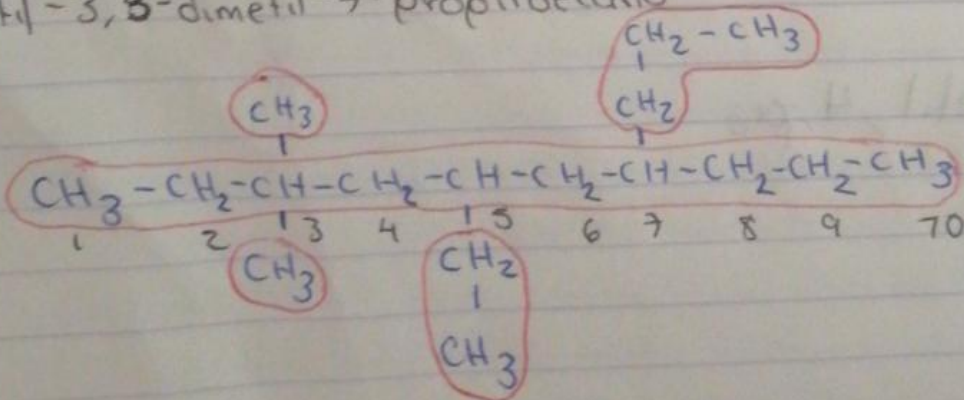 -3,3-dimetil
CH2 - CH3
CH3 CH2
CH3 - CH2 - CH - CH2 - CH - CH2 - CH - CH2 - CH2 - CH3
1 2 3 4 5 6 7 8 9 10
CH3 CH2
CH3